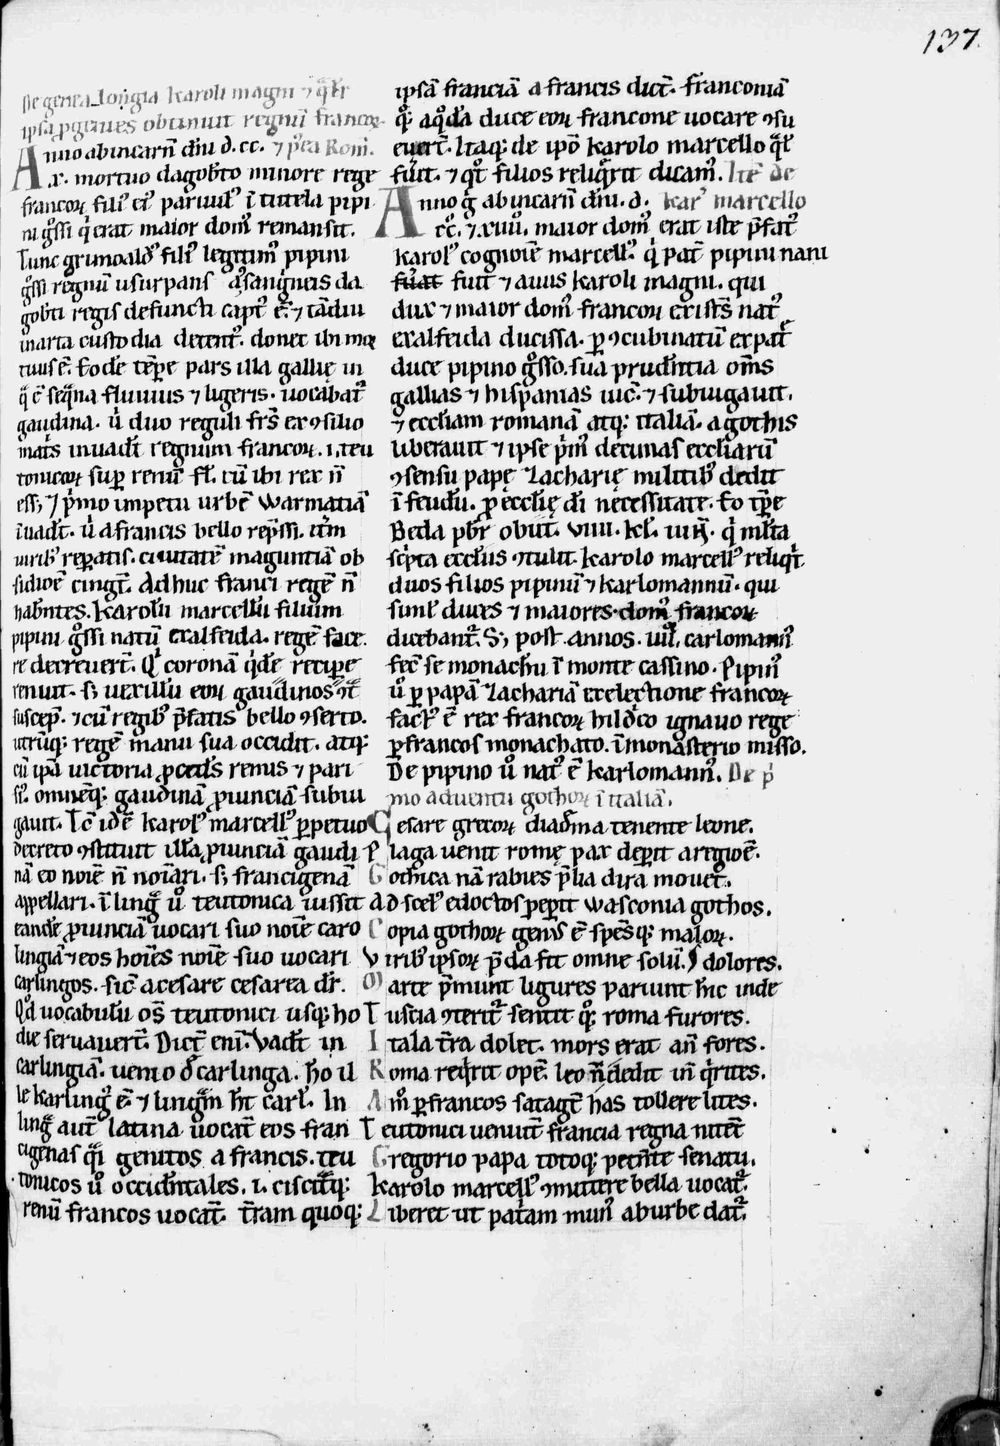 137.
De genealongia karoli magni ⁊ qꝉr
ipsa ꝓgenies obtinuit regnū francoꝝ
Anno ab incarñ dñi d. cc. ⁊ pꝰea Rom̄.
.x. mortuo dagobto minore rege
francoꝝ filiꝰ eiꝰ paruulꝰ ī tutela pipi
ni gͦssi qͥ erat maior domꝰ remansit.
Tunc grimoaldꝰ filiꝰ legitimꝰ pipini
gͦssi regnū usurpans ꝯsanguineis da
gobti regis defuncti captꝰ ē. ⁊ tādiu
in arta custodia detentꝰ. donec ibi moꝛ
tuus ē. Eodē tēpe pars illa gallię in
qͣ ē seqͣna fluuius ⁊ ligeris. uocabatᷣ
gaudina. ū duo reguli fr̄s ex ꝯsilio
mat̄s inuadūt regnum francoꝝ. .i. teu
tonicoꝝ suꝑ renū fl̄. cū ibi rex n̄
ess; ⁊ pͥmo impetu urbē warmatiā
īuadt̄. ū a francis bello rep̄ssi. itm̄
uiribꝰ repatis. ciuitatē maguntiā ob
sidiōe cingt̄. Adhuc franci regē n̄
habntes. karolū marcellū filium
pipini gͦssi natū ex alfeida. regē face
re decreuert̄. Qͥ coronā qͥdē recipe
renuit. sꝫ uexillū eoꝝ gaudinos ꝯt̄
suscep̄. ⁊ cū regibꝰ p̄fatis bello ꝯserto.
utrūqꝫ regē manu sua occidit. atqꝫ
cū ipā uictoria ꝓcedēs remis ⁊ pari
siꝰ. omnēqꝫ gaudinā ꝓuinciā subiu
gauit. Tc̄ idē karolꝰ marcellꝰ ꝑpetuo
decreto ꝯstituit illā ꝓuinciā gaudi
nā eo noīe n̄ noīari. sꝫ francigenā
appellari. ī lingͣ ū teutonica iussit
eandē ꝓuinciā uocari suo noīe caro
lingiā ⁊ eos hoīes noīe suo uocari
carlingos. sic̄ a cesare cesarea dr̄.
Qͦd uocabulū oēs teutonici usqꝫ ho
die seruauert̄. Dict̄ enī. Vadt̄ in
carlingiā. uenio d̄ carlinga. ħo il
le karlingꝰ ē. ⁊ linguā ħt carlꝰ. In
lingͣ aut̄ latina uocat̄ eos fran
cigenas qͣsi genitos a francis. teu
tonicos ū occidntales. .i. ciscit̄qꝫ
renū francos uocat̄. t̄ram quoqꝫ
ipsā franciā a francis dict̄. franconiā
qͥ. a qͦdā duce eoꝝ francone uocare ꝯsu
euert̄. Itaqꝫ de ipō karolo marcello qͣlr̄
fuit. ⁊ qͦt filios reliqͥrit dicamꝰ. Itē de
Anno gͦ ab incarñ dñi. d. karꝰ marcello
cc. ⁊ xiiii. maior domꝰ erat iste p̄fatꝰ
karolꝰ cognoīe marcellꝰ. qͥ pat̄ pipini nani
fuit ⁊ auus karoli magni. qui
dux ⁊ maior domꝰ francoꝝ existēs natꝰ
ex alfeida ducissa. ꝑ ꝯcubinatū ex pat̄
duce pipino gͦsso. sua prudn̄tia om̄s
gallias ⁊ hispanias uic̄. ⁊ subiugauit.
⁊ eccliam romanā atqꝫ italiā. a gothis
liberauit ⁊ ipse pͥmꝰ decimas eccliarū
ꝯsensu papę zacharię militibꝰ dedit
ī feudū. ꝓ ecclię dī necessitate. Eo tp̄e
Beda pbr̄ obiit. viiii. kl̄. iuñ. qͥ mlta
scͥpta eccliis ꝯtulit. karolo marcellꝰ reliqͥt
duos filios pipinū ⁊ karlomannū. qui
simlˀ duces ⁊ maiores domꝰ francoꝝ
dicebantᷣ. Sꝫ post annos. uiiˡ. carlomannꝰ
fec̄ se monachū ī monte cassino. Pipinꝰ
ū ꝑ papā zachariā ex electione francoꝝ
factꝰ ē rex francoꝝ hildͥco ignauo rege
ꝑ francos monachato. ī monasterio misso.
De pipino ū natꝰ ē karlomannꝰ. De pͥ
mo aduentu gothoꝝ ī italiā.
Cesare grecoꝝ diadma tenente leone.
Plaga uenit romę pax depit a regiōe.
Gothica nā rabies p̄lia dira mouet.
Ad scelꝰ edoctos pepit wasconia gothos.
Copia gothoꝝ genꝰ ē spēsqꝫ maloꝝ.
Viribꝰ ipsoꝝ p̄da fit omne solū. dolores.
Marte p̄munt ligures pariunt hīc inde
Tuscia ꝯteritᷣ sentit qͦꝫ roma furores.
Itala t̄ra dolet. mors erat an̄ fores.
Roma reqͥrit opē. leo n̄ dedit in qͥrites.
Amꝰ ꝑ francos satagt̄ has tollere lites.
Teutonici uenit̄ francia regna nitēt
Gregorio papa totoqꝫ petn̄te senatu.
karolo marcellꝰ ꝯmittere bella uocatᷣ.
Liberet ut pat̄am munꝰ ab urbe datᷣ.